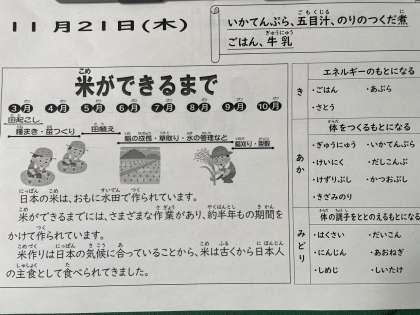 11月21日(木)
いかてんぷら、五目汁、のりのつくだ煮
ごはん、牛乳
米ができるまで
3月 4月 5月 6月 7月 8月 9月 10月
田起こし
種まき・苗づくり
田植え
稲の成長・草取り・水の管理など
稲刈り・乾燥
日本の米は、おもに水田で作られています。
米ができるまでには、さまざまな作業があり、約半年もの期間を
かけて作られています。
米作りは日本の気候に合っていることから、米は古くから日本人
の主食として食べられてきました。
き
エネルギーのもとになる
・ごはん ・あぶら
・さとう
あか
体をつくるもとになる
・ぎゅうにゅう ・いかてんぷら
・けいにく ・だしこんぶ
・けずりぶし ・かつおぶし
・きざみのり
みどり
体の調子をととのえるもとになる
・はくさい ・だいこん
・にんじん ・あおねぎ
・しめじ ・しいたけ